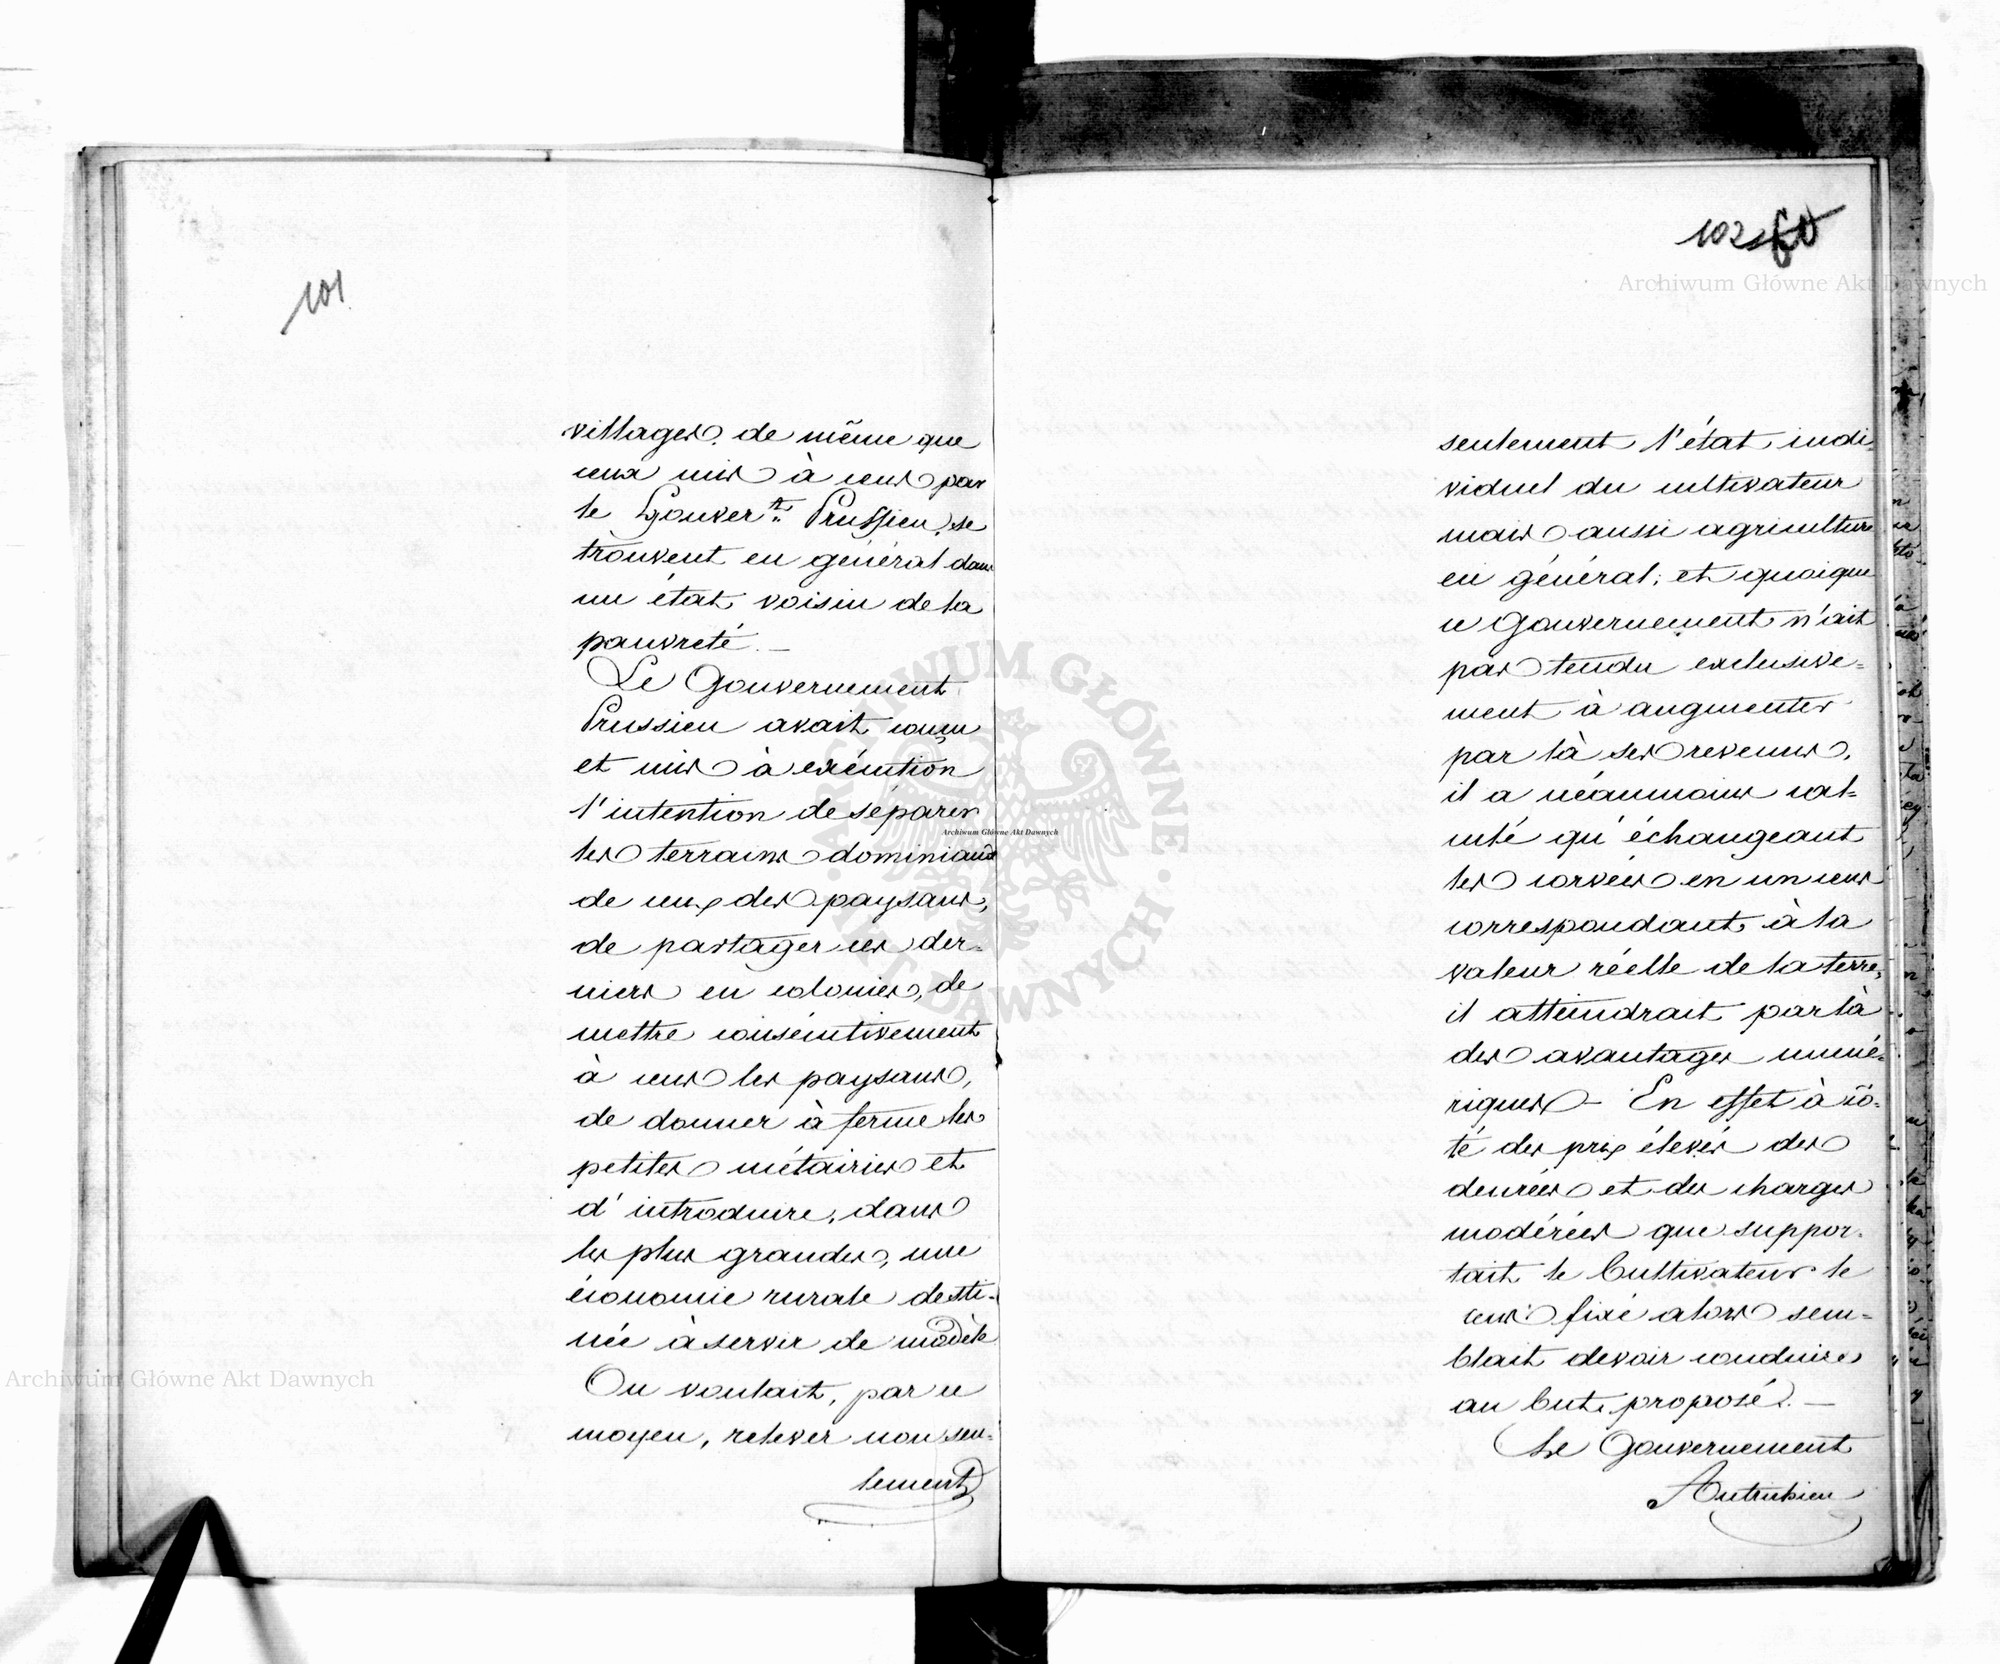 101
villages, de même que
ceux mis à cens par
le Gouver.t Prussien, se
trouvent en général dans
un état voisin de la
pauvreté. —
Le Gouvernement
Prussien avait conçu
et mis à exécution
l'intention de séparer
les terrains dominiaux
de ceux des paysans,
de partager ces der-
niers en colonies, de
mettre consécutivement
à cens les paysans,
de donner à ferme les
petites métairies et
d'introduire, dans
les plus grandes, une
économie rurale desti-
née à servir de modèle
On voulait, par ce
moyen, relever non seu-
lement
102
seulement l'état indi-
viduel du cultivateur
mais aussi agriculture
en général; et quoique
ce Gouvernement n'ait
pas tendu exclusive-
ment à augmenter
par là ses revenus,
il a néanmoins cal-
culé qu'échangeant
les corvées en un cens
correspondant à la
valeur réelle de la terre,
il atteindrait par là
des avantages numé-
riques — En effet à cô-
té des prix élevés des
denrées et des charges
modérées que suppor-
tait le Cultivateur le
cens fixé alors sem-
blait devoir conduire
au but proposé. —
Le Gouvernement
Autrichien
Archiwum Główne Akt Dawnych
Archiwum Główne Akt Dawnych
Archiwum Główne Akt Dawnych
ARCHIWUM GŁÓWNE AKT DAWNYCH